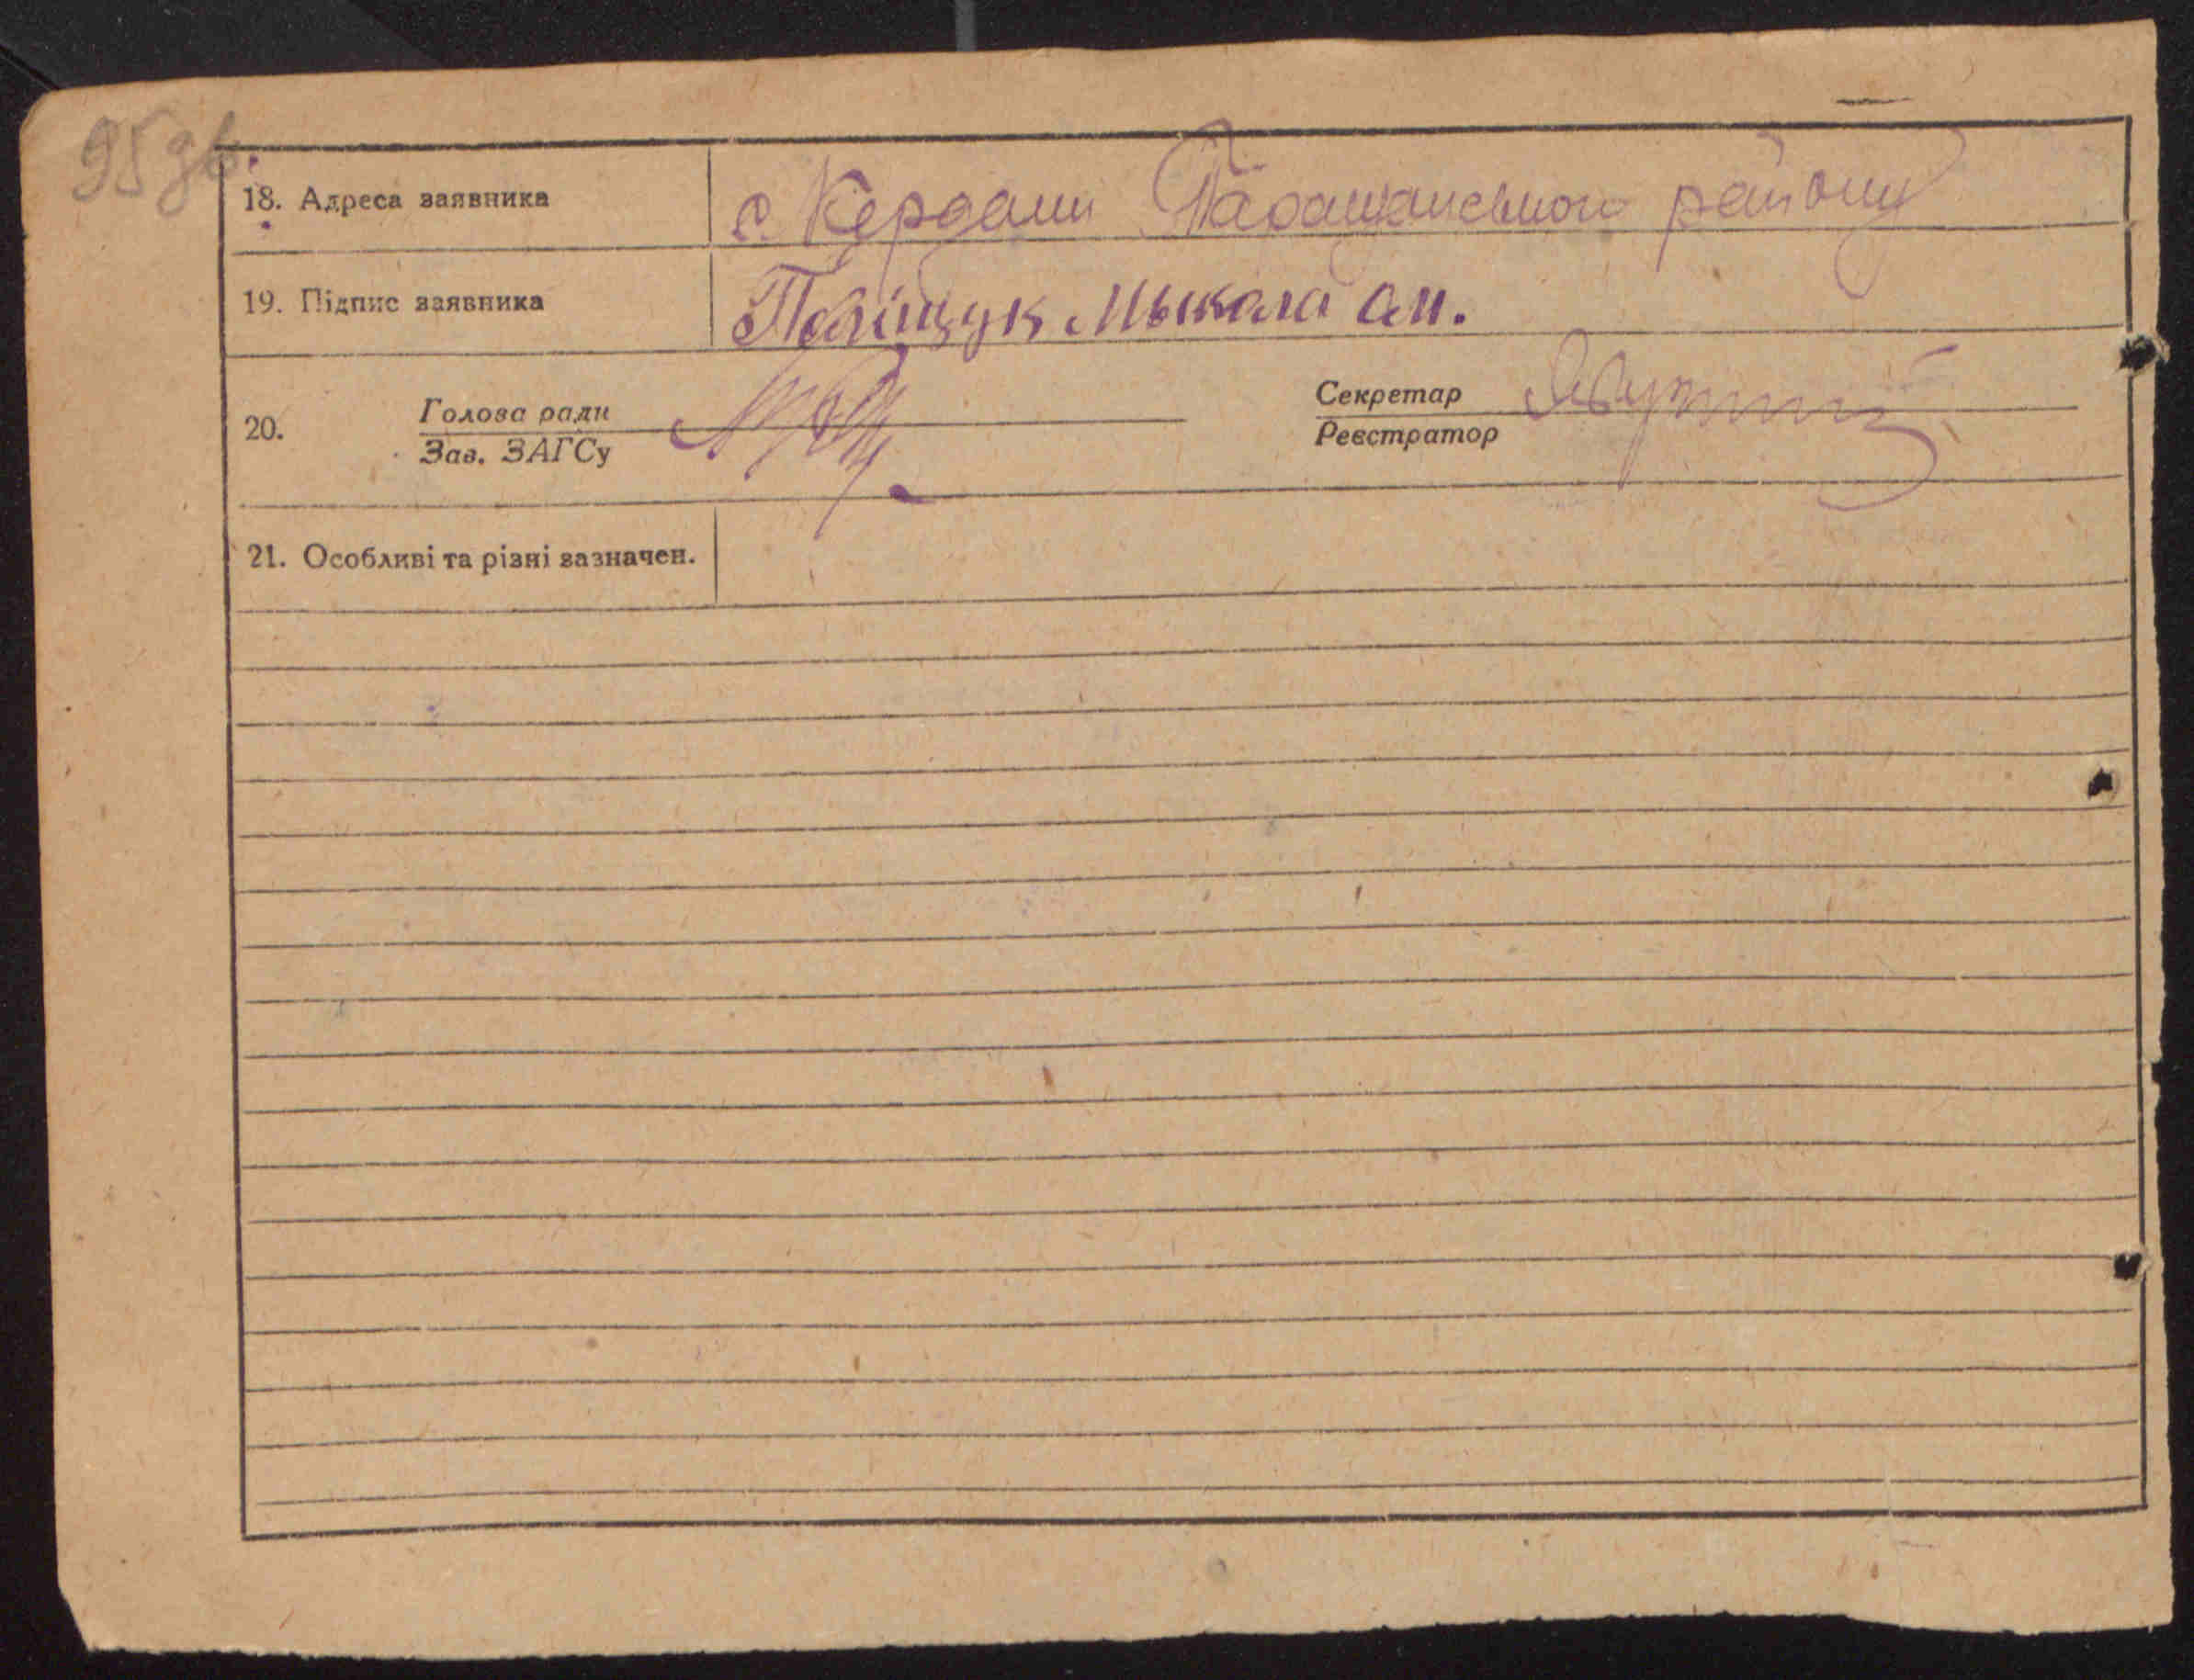 95 зв.
18. Адреса заявника с. Кердани Таращанського району
19. Підпис заявника Поліщук Мыкола ам.
20. Голова ради Секретар
Зав. ЗАГСу Реєстратор
21. Особливі та різні зазначен.